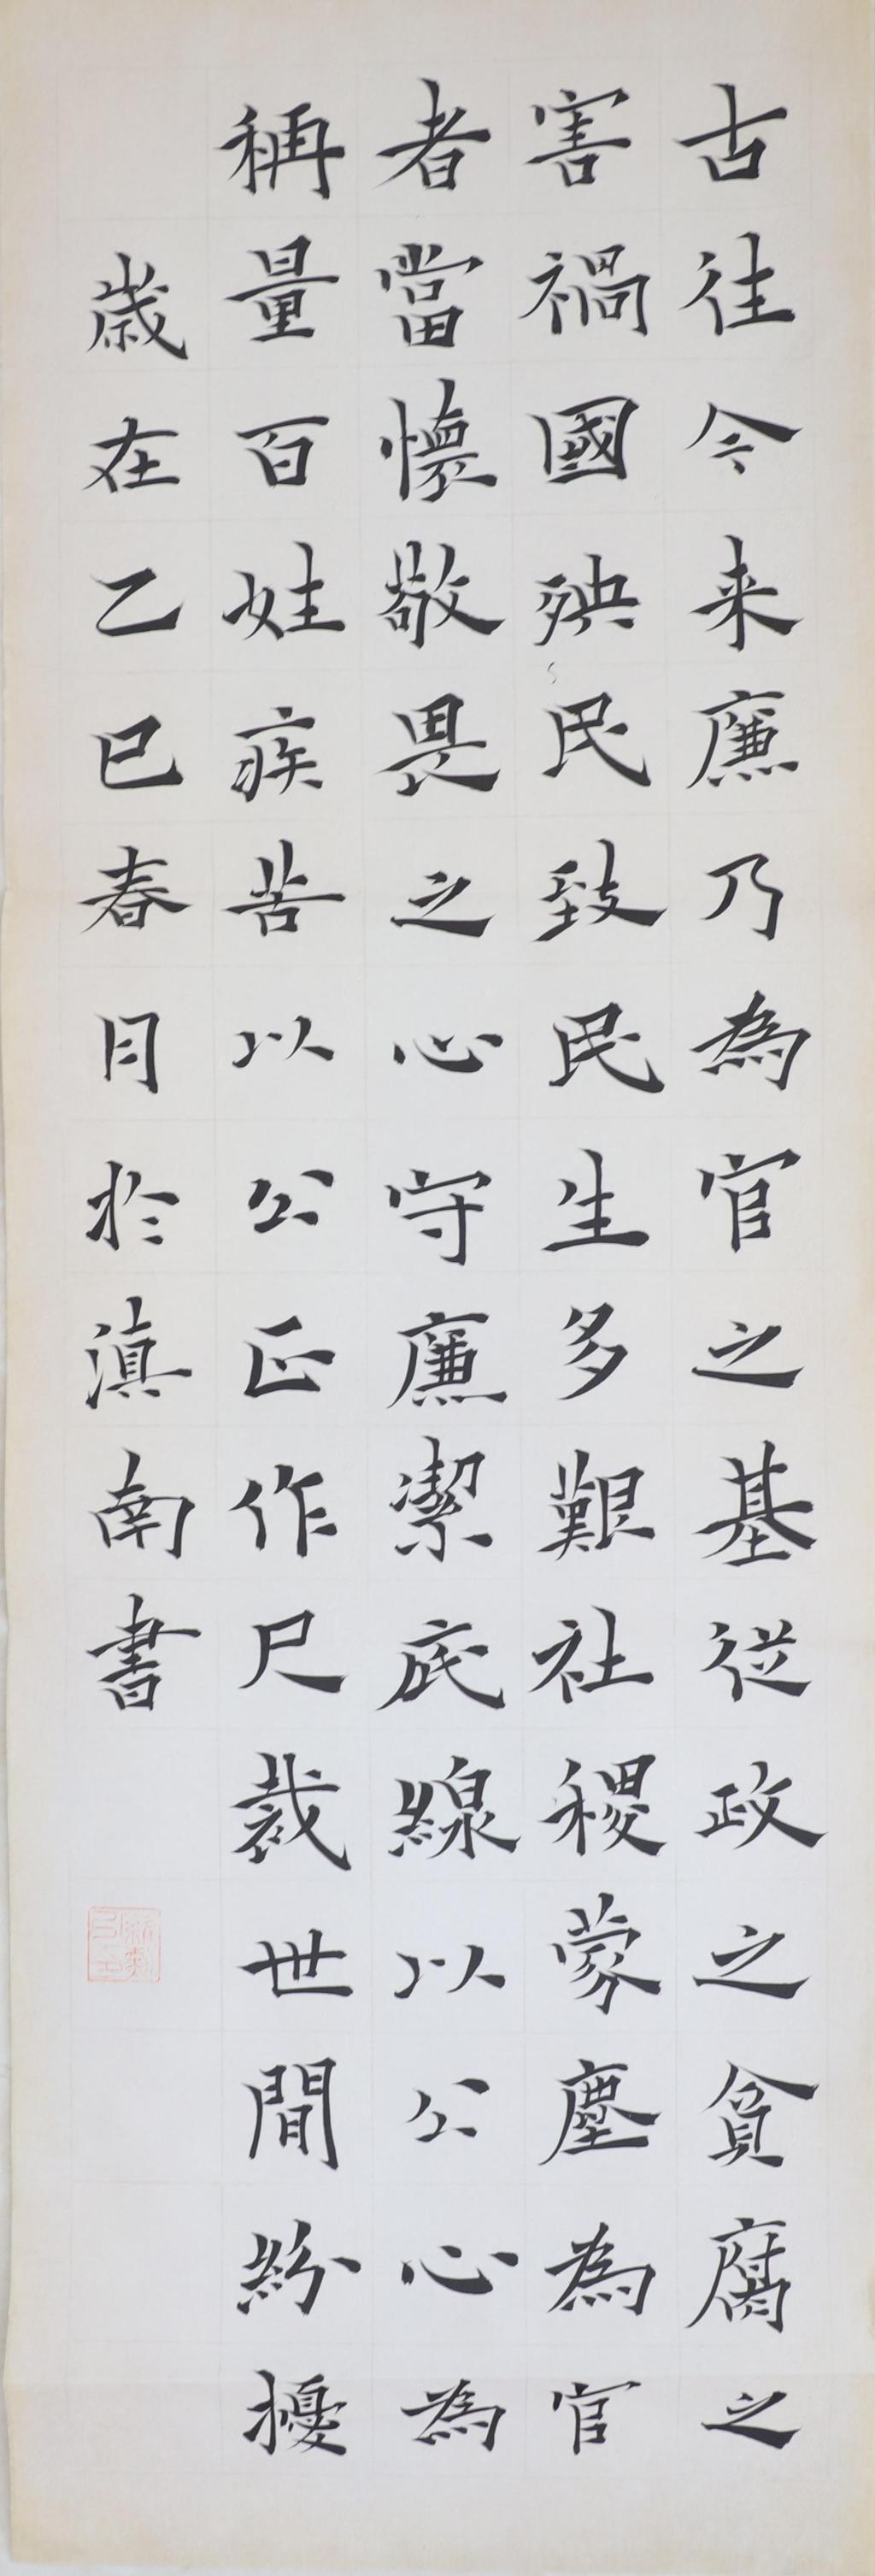 古往今来廉乃為官之基從政之貪腐之
害禍國殃民致民生多艱社稷蒙塵為官
者當懷敬畏之心守廉潔底線以公心為
稱量百姓疾苦以公正作尺裁世間紛擾
歲在乙巳春月於滇南書